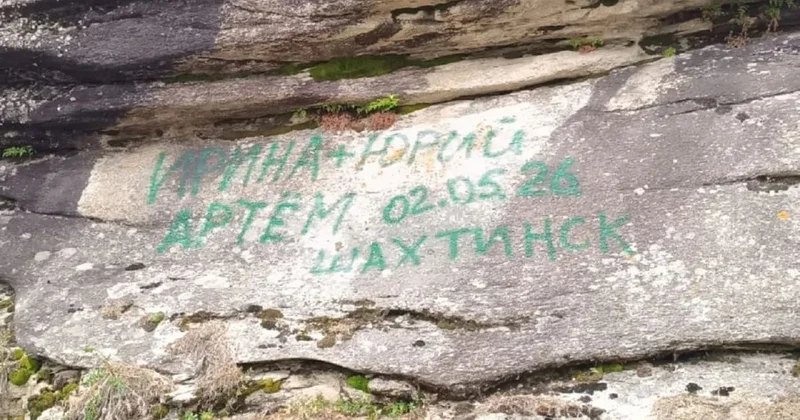 ИРИНА+ЮРИЙ
АРТЁМ 02.05.26
ШАХТИНСК